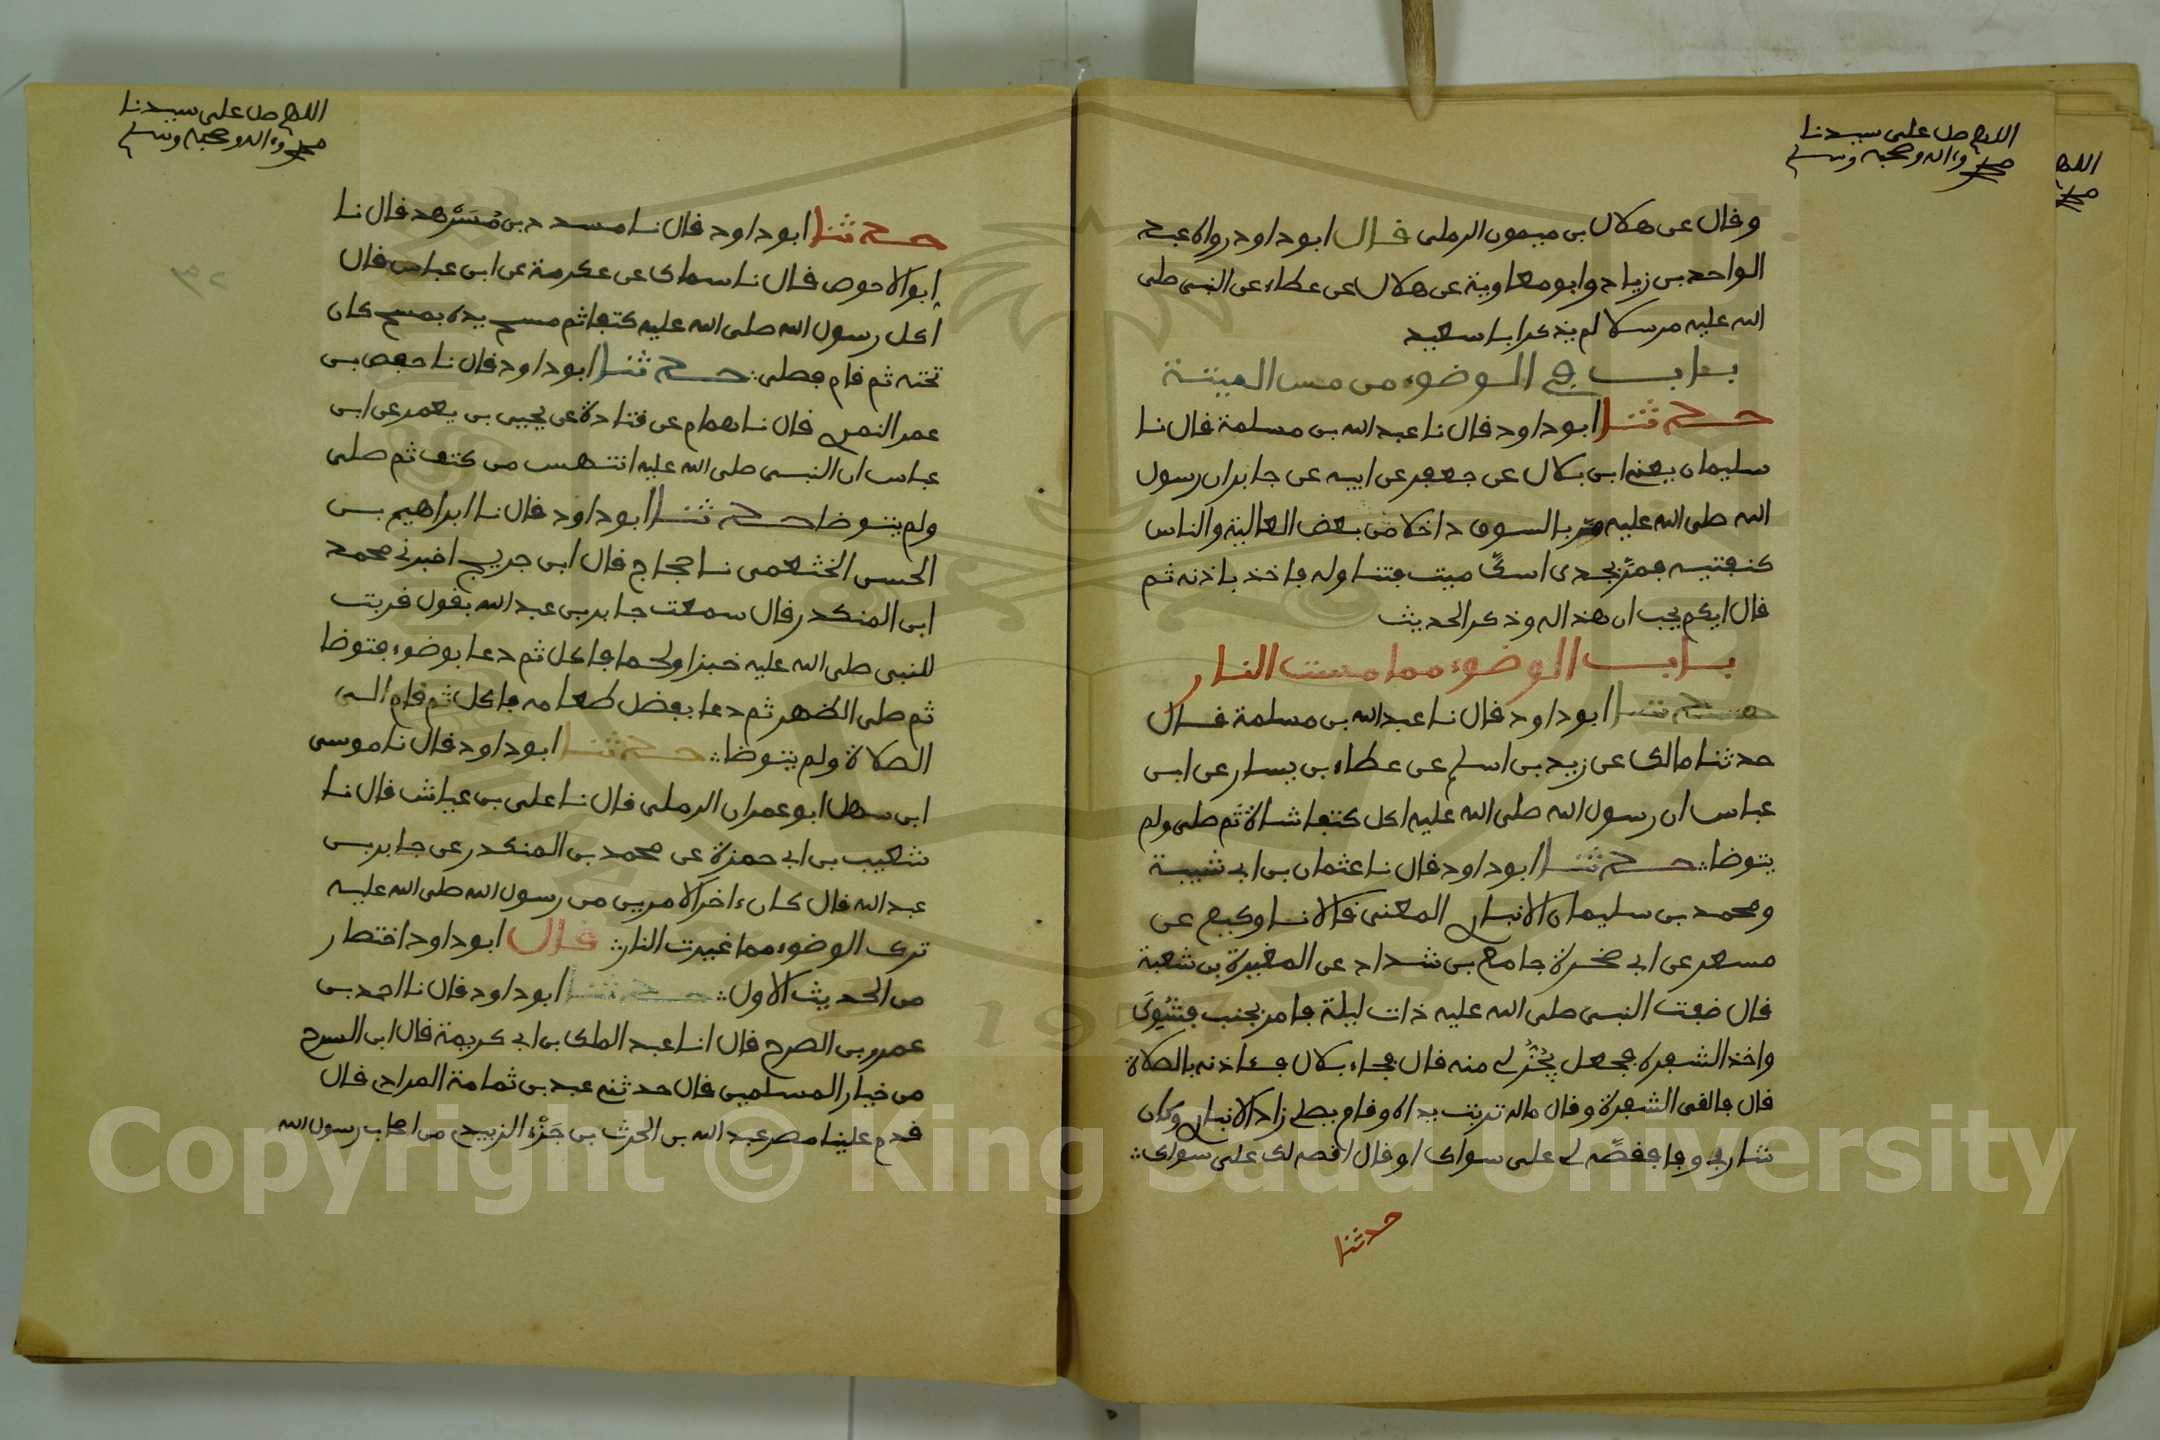 اللهم صل على سيدنا
محمد وءاله وصحبه وسلم
وقال عن هلال بن ميمون الرملي قال ابو داود رواه عبد
الواحد بن زياد وابو معاوية عن هلال عن عطاء عن النبي صلى
الله عليه مرسلا لم يذكر ابا سعيد
باب في الوضوء من مس الميتة
حدثنا ابو داود قال نا عبد الله بن مسلمة قال نا
سليمان يعني ابن بلال عن جعفر عن ابيه عن جابر ان رسول
الله صلى الله عليه مر بالسوق داخلا من بعض العالية والناس
كنفتيه فمر بجدي اسك ميت فتناوله فاخذ باذنه ثم
قال ايكم يحب ان هذا له وذكر الحديث
باب الوضوء مما مست النار
حدثنا ابو داود قال نا عبد الله بن مسلمة قال
حدثنا مالك عن زيد بن اسلم عن عطاء بن يسار عن ابن
عباس ان رسول الله صلى الله عليه اكل كتف شاة ثم صلى ولم
يتوضا حدثنا ابو داود قال نا عثمان بن ابي شيبة
ومحمد بن سليمان الانباري المعنى قالا نا وكيع عن
مسعر عن ابي صخرة جامع بن شداد عن المغيرة بن شعبة
قال ضفت النبي صلى الله عليه ذات ليلة فامر بجنب فشوى
واخذ الشفرة فجعل يحز لي منه قال فجاء بلال فءاذنه بالصلاة
قال فالقى الشفرة وقال ماله تربت يداه وقام يصلي زاد الانباري وكان
شاربي وفا فقصه لي على سواك او قال اقصه لك على سواك
حدثنا
اللهم صل على سيدنا
محمد وءاله وصحبه وسلم
حدثنا ابو داود قال نا مسدد بن مسرهد قال نا
ابو الاحوص قال نا سماك عن عكرمة عن ابن عباس قال
اكل رسول الله صلى الله عليه كتفا ثم مسح يده بمسح كان
تحته ثم قام فصلى حدثنا ابو داود قال نا حفص بن
عمر النمري قال نا همام عن قتادة عن يحيى بن يعمر عن ابن
عباس ان النبي صلى الله عليه انتهس من كتف ثم صلى
ولم يتوضا حدثنا ابو داود قال نا ابراهيم بن
الحسن الخثعمي نا حجاج قال ابن جريج اخبرني محمد
ابن المنكدر قال سمعت جابر بن عبد الله يقول قربت
للنبي صلى الله عليه خبزا ولحما فاكل ثم دعا بوضوء فتوضا
ثم صلى الظهر ثم دعا بفضل طعامه فاكل ثم قام الى
الصلاة ولم يتوضا حدثنا ابو داود قال نا موسى
ابن سهل ابو عمران الرملي قال نا علي بن عياش قال نا
شعيب بن ابي حمزة عن محمد بن المنكدر عن جابر بن
عبد الله قال كان ءاخر الامرين من رسول الله صلى الله عليه
ترك الوضوء مما غيرت النار قال ابو داود اختصار
من الحديث الاول حدثنا ابو داود قال نا احمد بن
عمرو بن الصرح قال انا عبد الملك بن ابي كريمة قال ابن السرح
من خيار المسلمين قال حدثني عبيد بن ثمامة المرادي قال
قدم علينا مصر عبد الله بن الحرث بن جزء الزبيدي من اصحاب رسول الله
Copyright © King Saud University